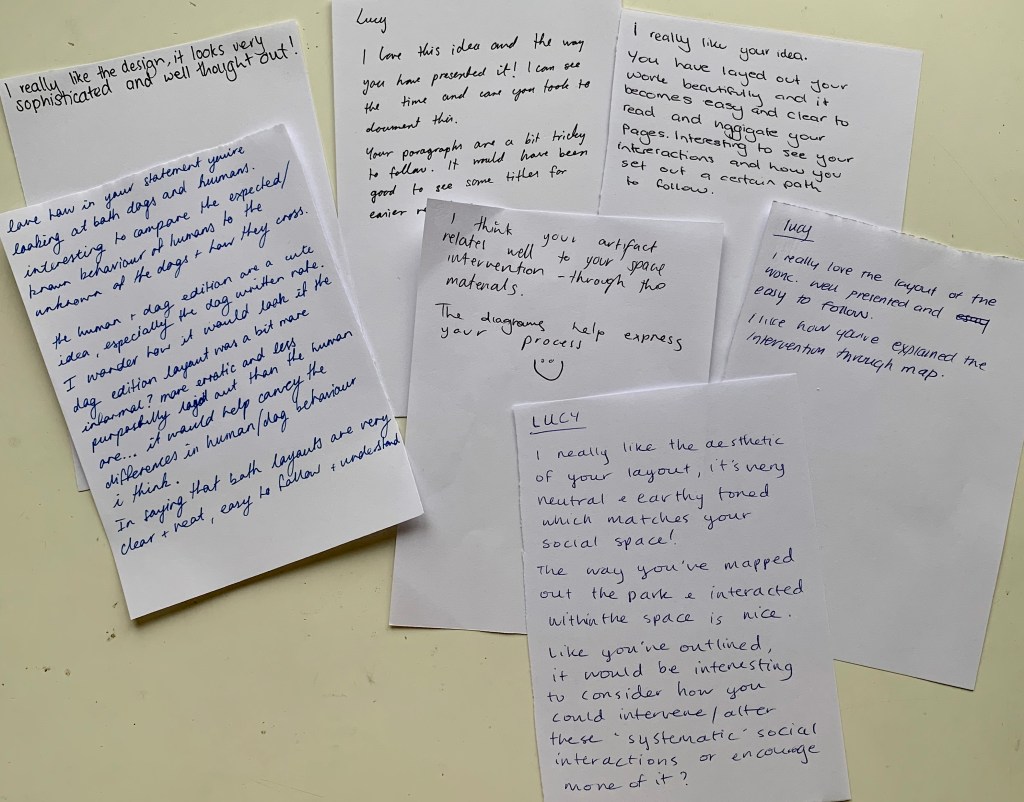 I really like the design, it looks very
sophisticated and well thought out!
love how in your statement you're
looking at both dogs and humans.
interesting to compare the expected/
known behaviour of humans to the
unknown of the dogs + how they cross.
the human + dog edition are a cute
idea, especially the dog written note.
I wonder how it would look if the
dog edition layout was a bit more
informal? more erratic and less
purposfully layed out than the human
are... it would help convey the
differences in human/dog behaviour
i think.
In saying that both layouts are very
clear + neat, easy to follow + understand
Lucy
I love this idea and the way
you have presented it! I can see
the time and care you took to
document this.
Your paragraphs are a bit tricky
to follow. It would have been
good to see some titles for
easier
I really like your idea.
You have layed out your
work beautifully and it
becomes easy and clear to
read and naggigate your
pages. Interesting to see your
intereractions and how you
set out a certain path
to follow.
I think your artifact
relates well to your space
intervention - through tho
materials.
The diagrams help express
your process
lucy
I really love the layout of the
work. Well presented and
easy to follow.
I like how youve explained the
intervention through map.
LUCY
I really like the aesthetic
of your layout, it's very
neutral & earthy toned
which matches your
social space!
The way you've mapped
out the park & interacted
within the space is nice.
Like you've outlined,
it would be interesting
to consider how you
could intervene/alter
these 'systematic' social
interactions or encourage
more of it?